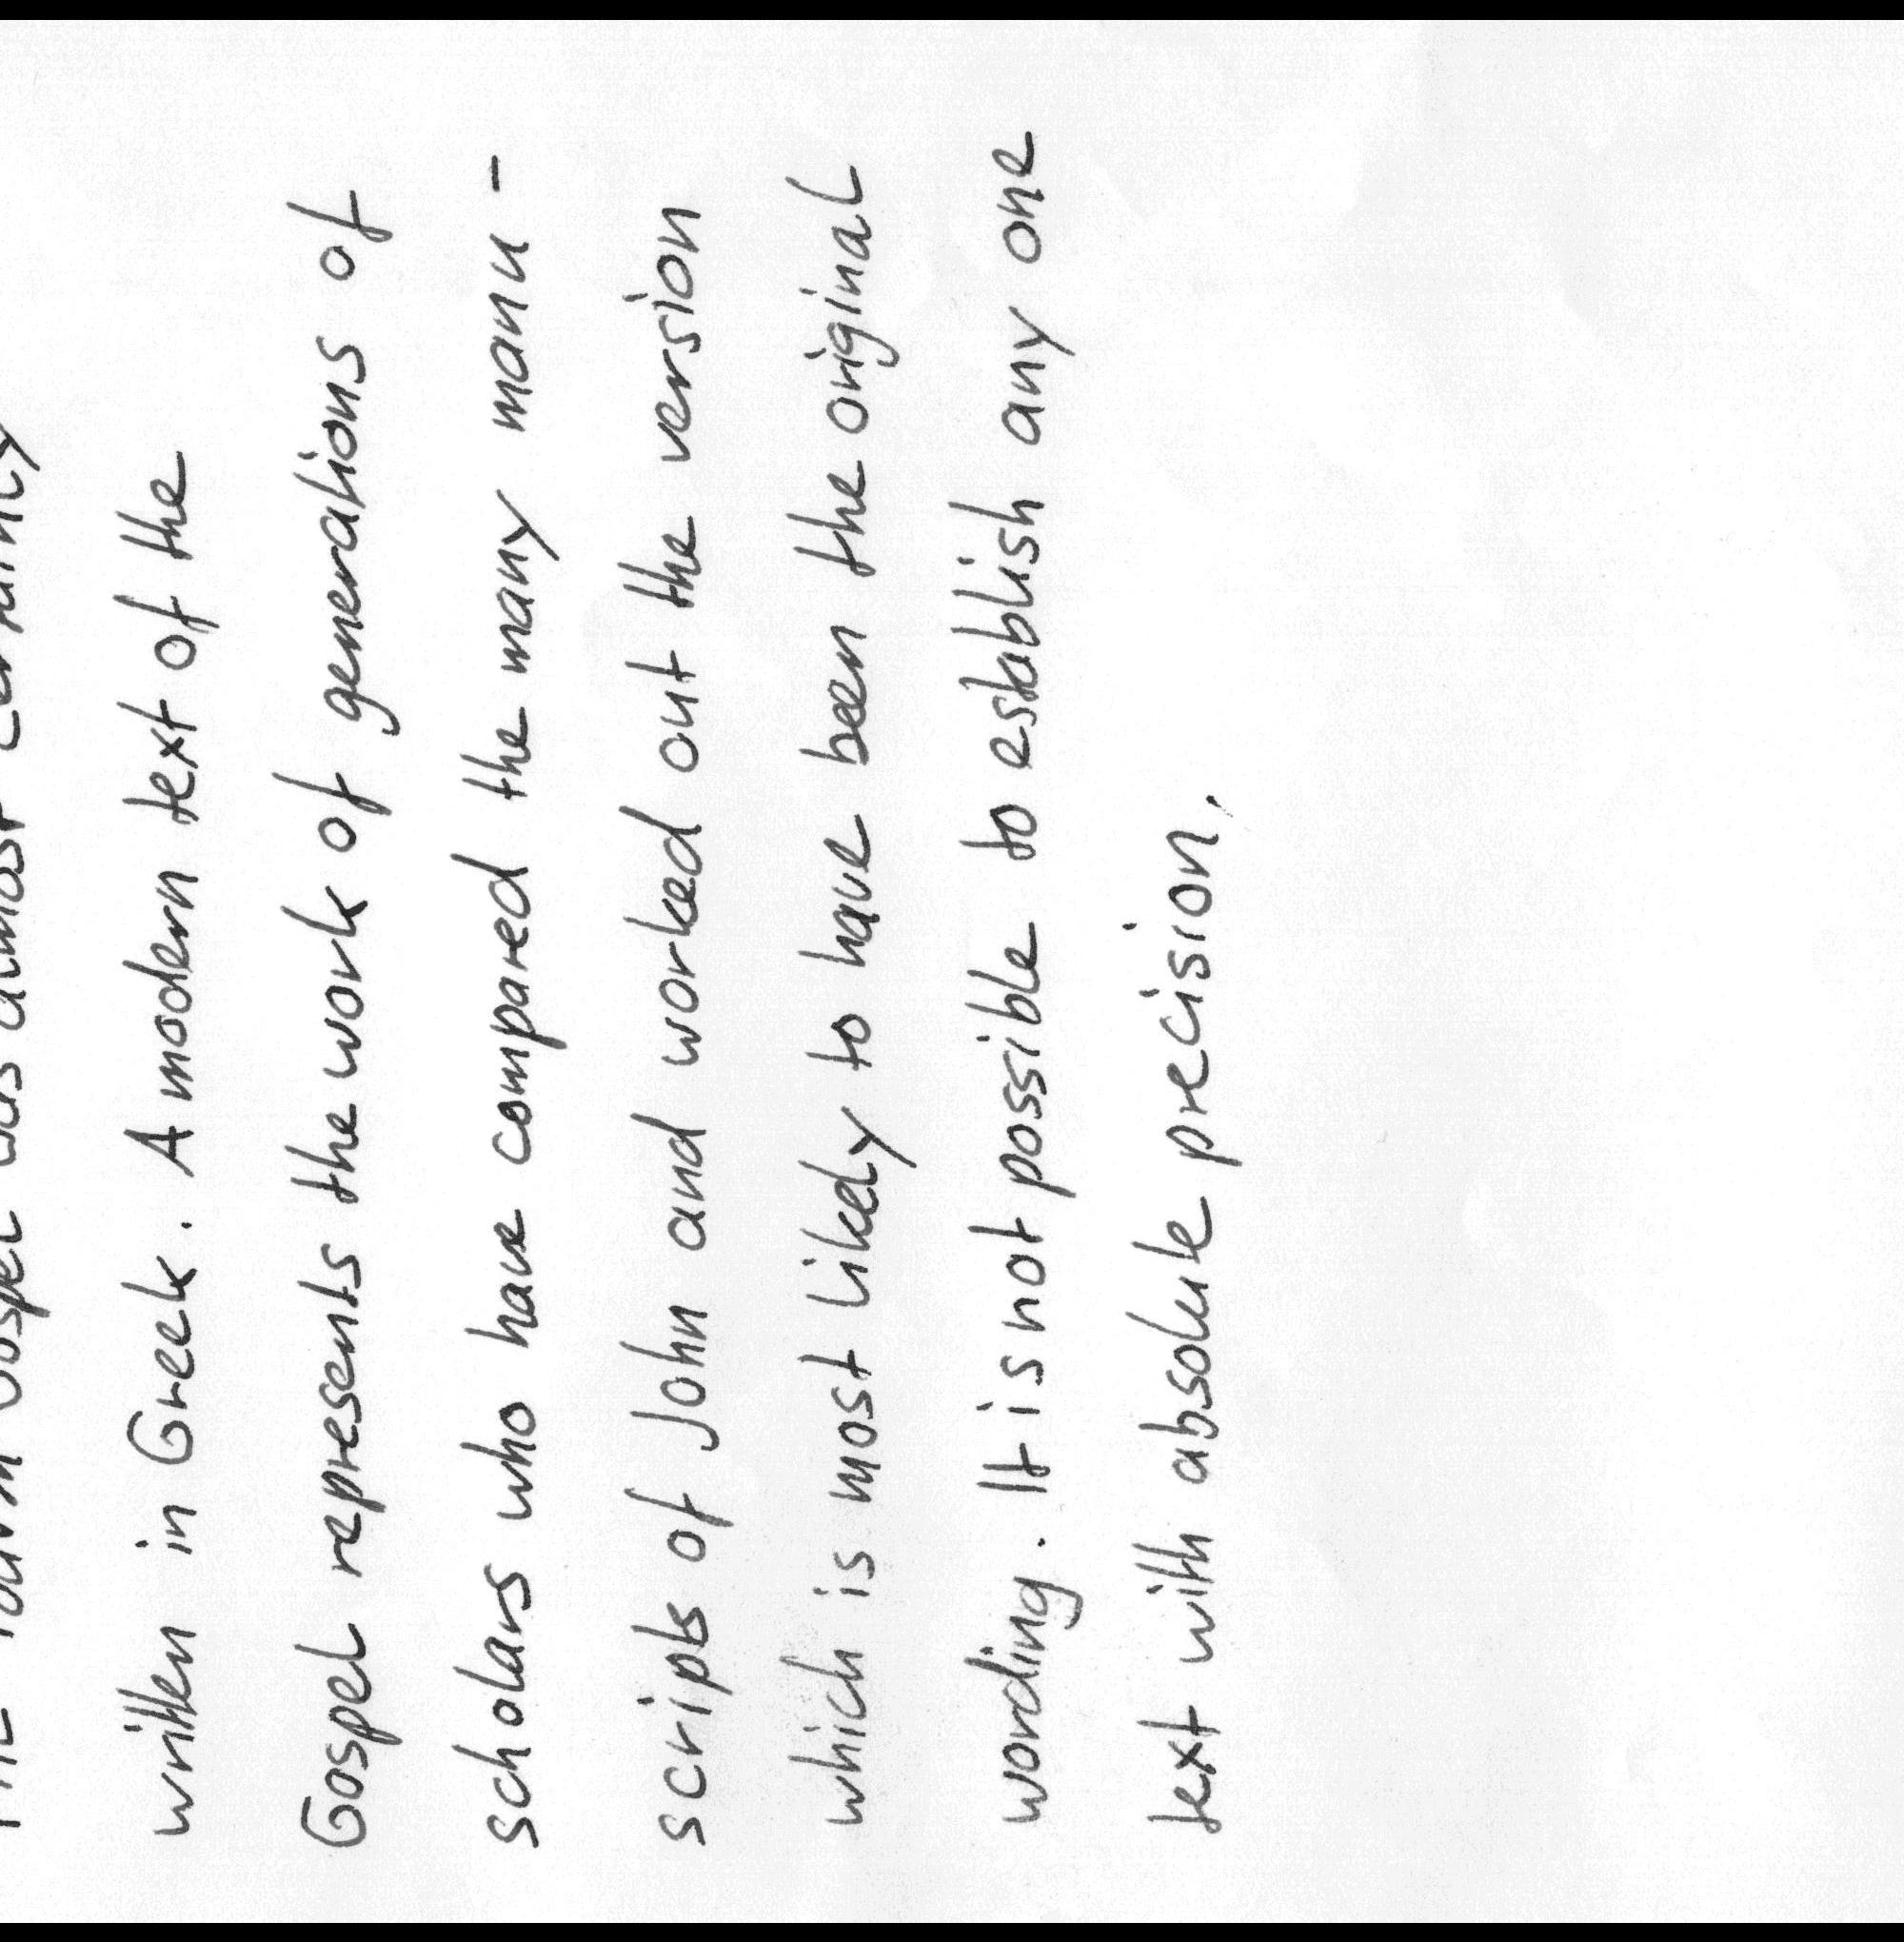 The fourth Gospel was almost certainly
written in Greek. A modern text of the
Gospel represents the work of generations of
scholars who have compared the many manu-
scripts of John and worked out the version
which is most likely to have been the original
wording. It is not possible to establish any one
text with absolute precision.